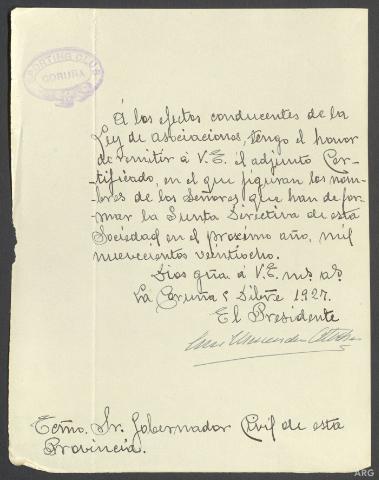 SPORTING CLUB
CORUÑA
Á los efectos conducentes de la
Ley de asociaciones, tengo el honor
de remitir á V.E. el adjunto Cer-
-tificado, en el que figuran los nom-
-bres de los Señores que han de for-
mar la Junta Directiva de esta
Sociedad en el proximo año, mil
nuevecientos veintiocho.
Dios gũa á V.E. m.s a.s
La Coruña 5 Dibre 1927.
El Presidente
Ecmo. Sr. Gobernador Civil de esta
Provincia.
ARG